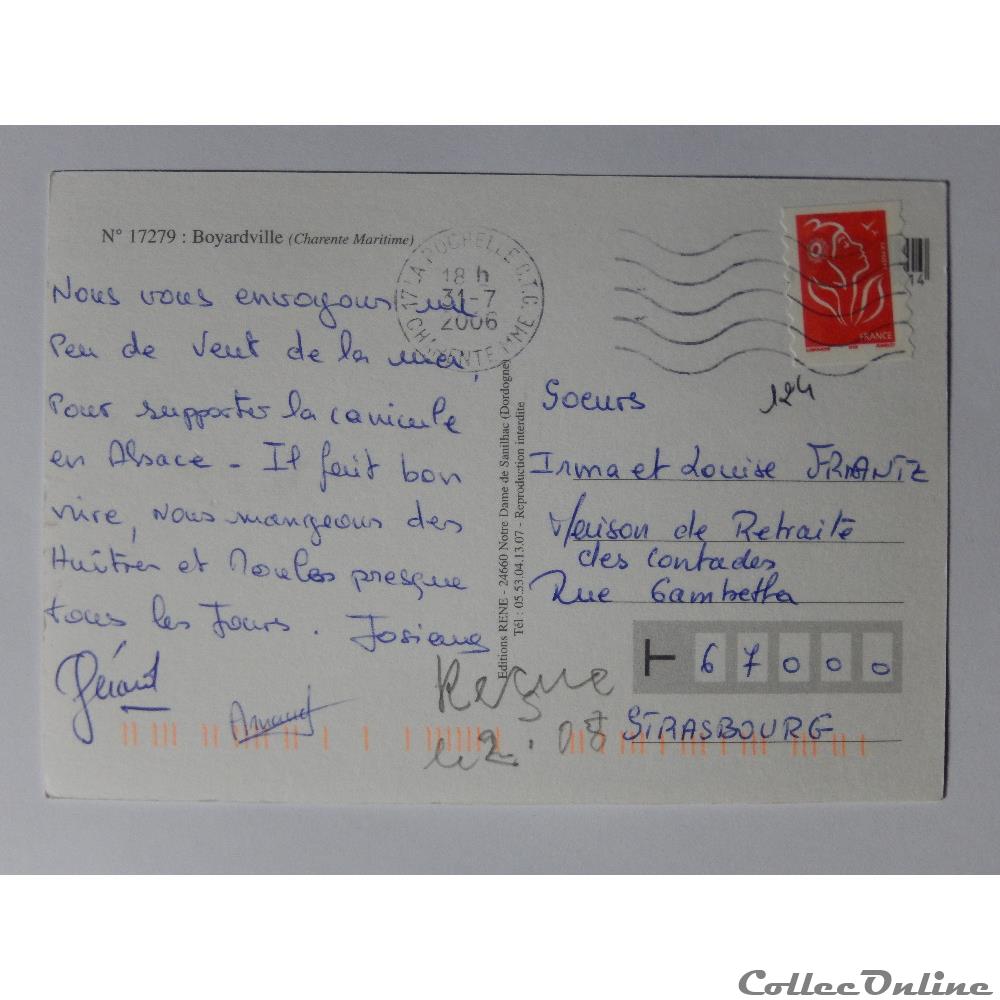 N° 17279 : Boyardville (Charente Maritime)
17 LA ROCHELLE C.T.C.
18 h
31-7
2006
CHARENTE MME
14
LA POSTE
FRANCE
Nous vous envoyons un
Peu de Vent de la mer,
Pour supporter la canicule
en Alsace - Il fait bon
vivre, nous mangeons des
Huîtres et Moules presque
tous les Jours. Josiane
Gérard
Arnaud
Editions RENE - 24660 Notre Dame de Sanilhac (Dordogne)
Tél : 05.53.04.13.07 - Reproduction interdite
124
Soeurs
Irma et Louise FRANTZ
Maison de Retraite
des contades
Rue Gambetta
67000
STRASBOURG
Reçue
CollecOnline